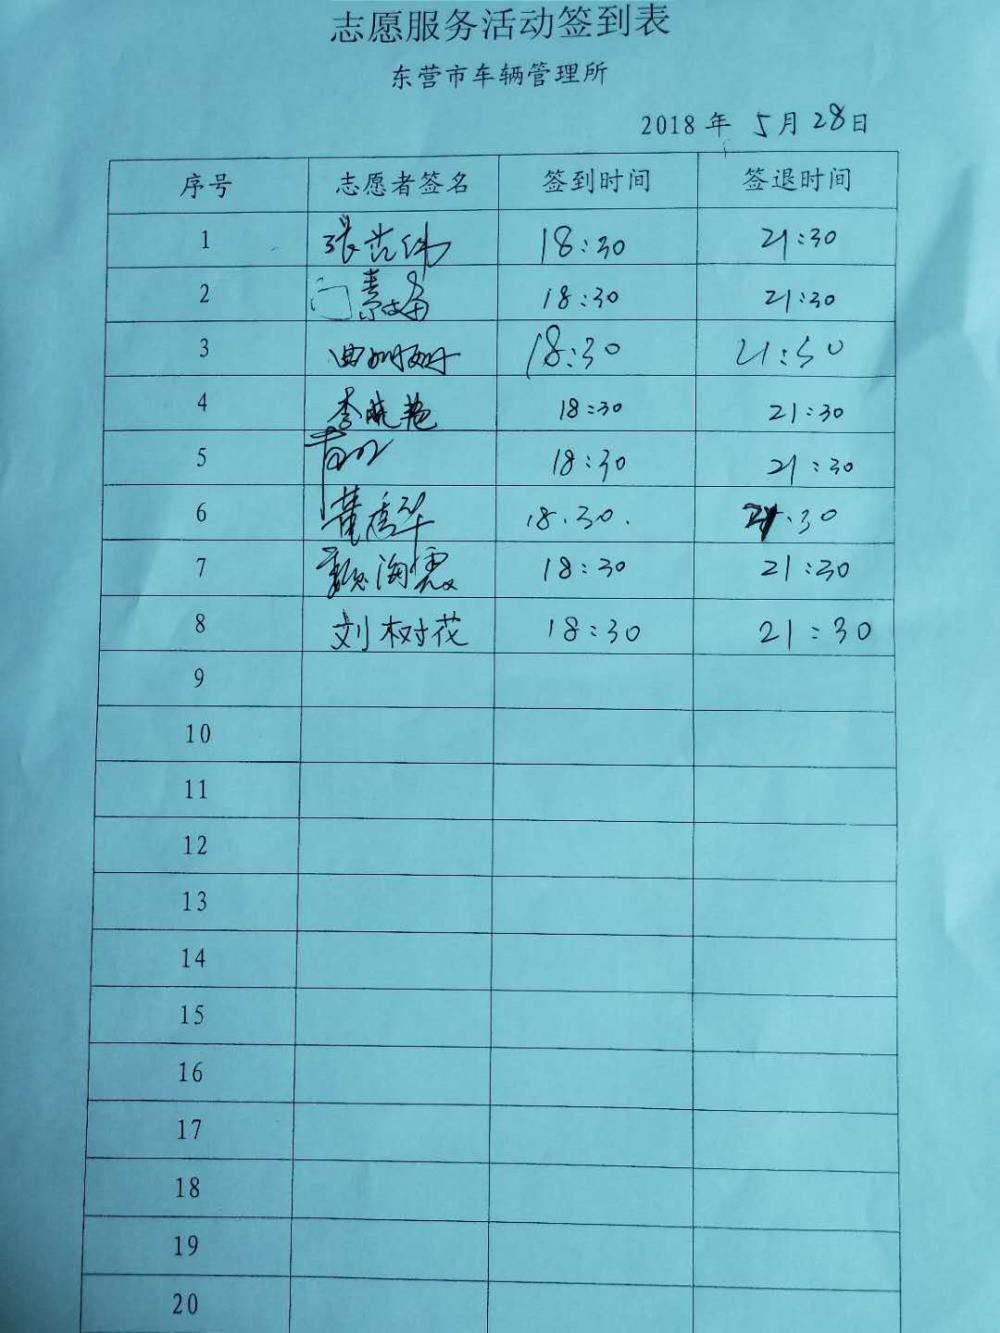 志愿服务活动签到表
东营市车辆管理所
2018 年 5 月 28 日
序号 志愿者签名 签到时间 签退时间
1 18:30 21:30
2 18:30 21:30
3 曲姗姗 18:30 21:30
4 李晓艳 18:30 21:30
5 18:30 21:30
6 18.30. 21.30
7 18:30 21:30
8 刘树花 18:30 21:30
9
10
11
12
13
14
15
16
17
18
19
20